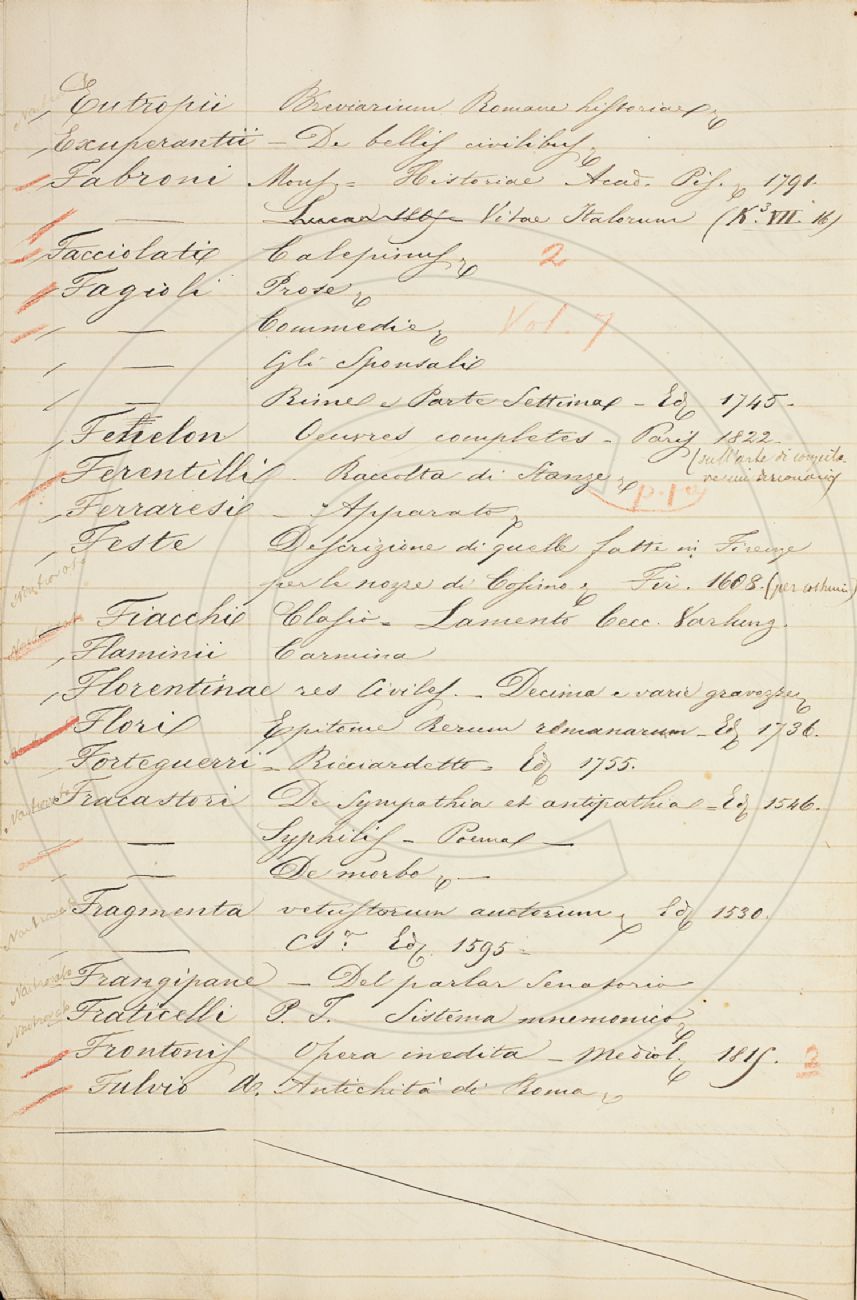 Eutropii Breviarium Romane historiae
Exuperantii – De bellis civilibus
Fabroni Mons = Historiae Acad. Pis. 1791.
— Vitae Italorum (K.3 VII. 16)
Facciolati Calepinus 2
Fagioli Prose
— Commedie Vol. 7
— Gli Sponsali
— Rime e Parte Settima – Ed 1745.
Fenelon Oeuvres completes – Paris 1822.
(sull'arte di
Ferentilli Raccolta di Stanze p. 1a
Ferraresi – Apparato
Feste Descrizione di quelle fatte in Firenze
per le nozze di Cosimo Fir. 1608.
Fiacchi Clasio – Lamento Cecc. Varlung.
Flaminii Carmina
Florentinae res Civiles. – Decima e varie gravezze
Flori Epitome Rerum romanarum – Ed 1736.
Forteguerri – Ricciardetto – Ed 1755.
Nastronato Fracastori De Sympathia et antipathia = Ed 1546.
— Syphilis – Poema —
— De morbo —
Fragmenta vetustorum auctorum Ed 1530.
— Ed. 1595 –
Frangipane – Del parlar Senatorio
Fraticelli P. J. Sistema mnemonico
Frontonis Opera inedita – Mediol. 1815. 2
Fulvio A. Antichità di Roma